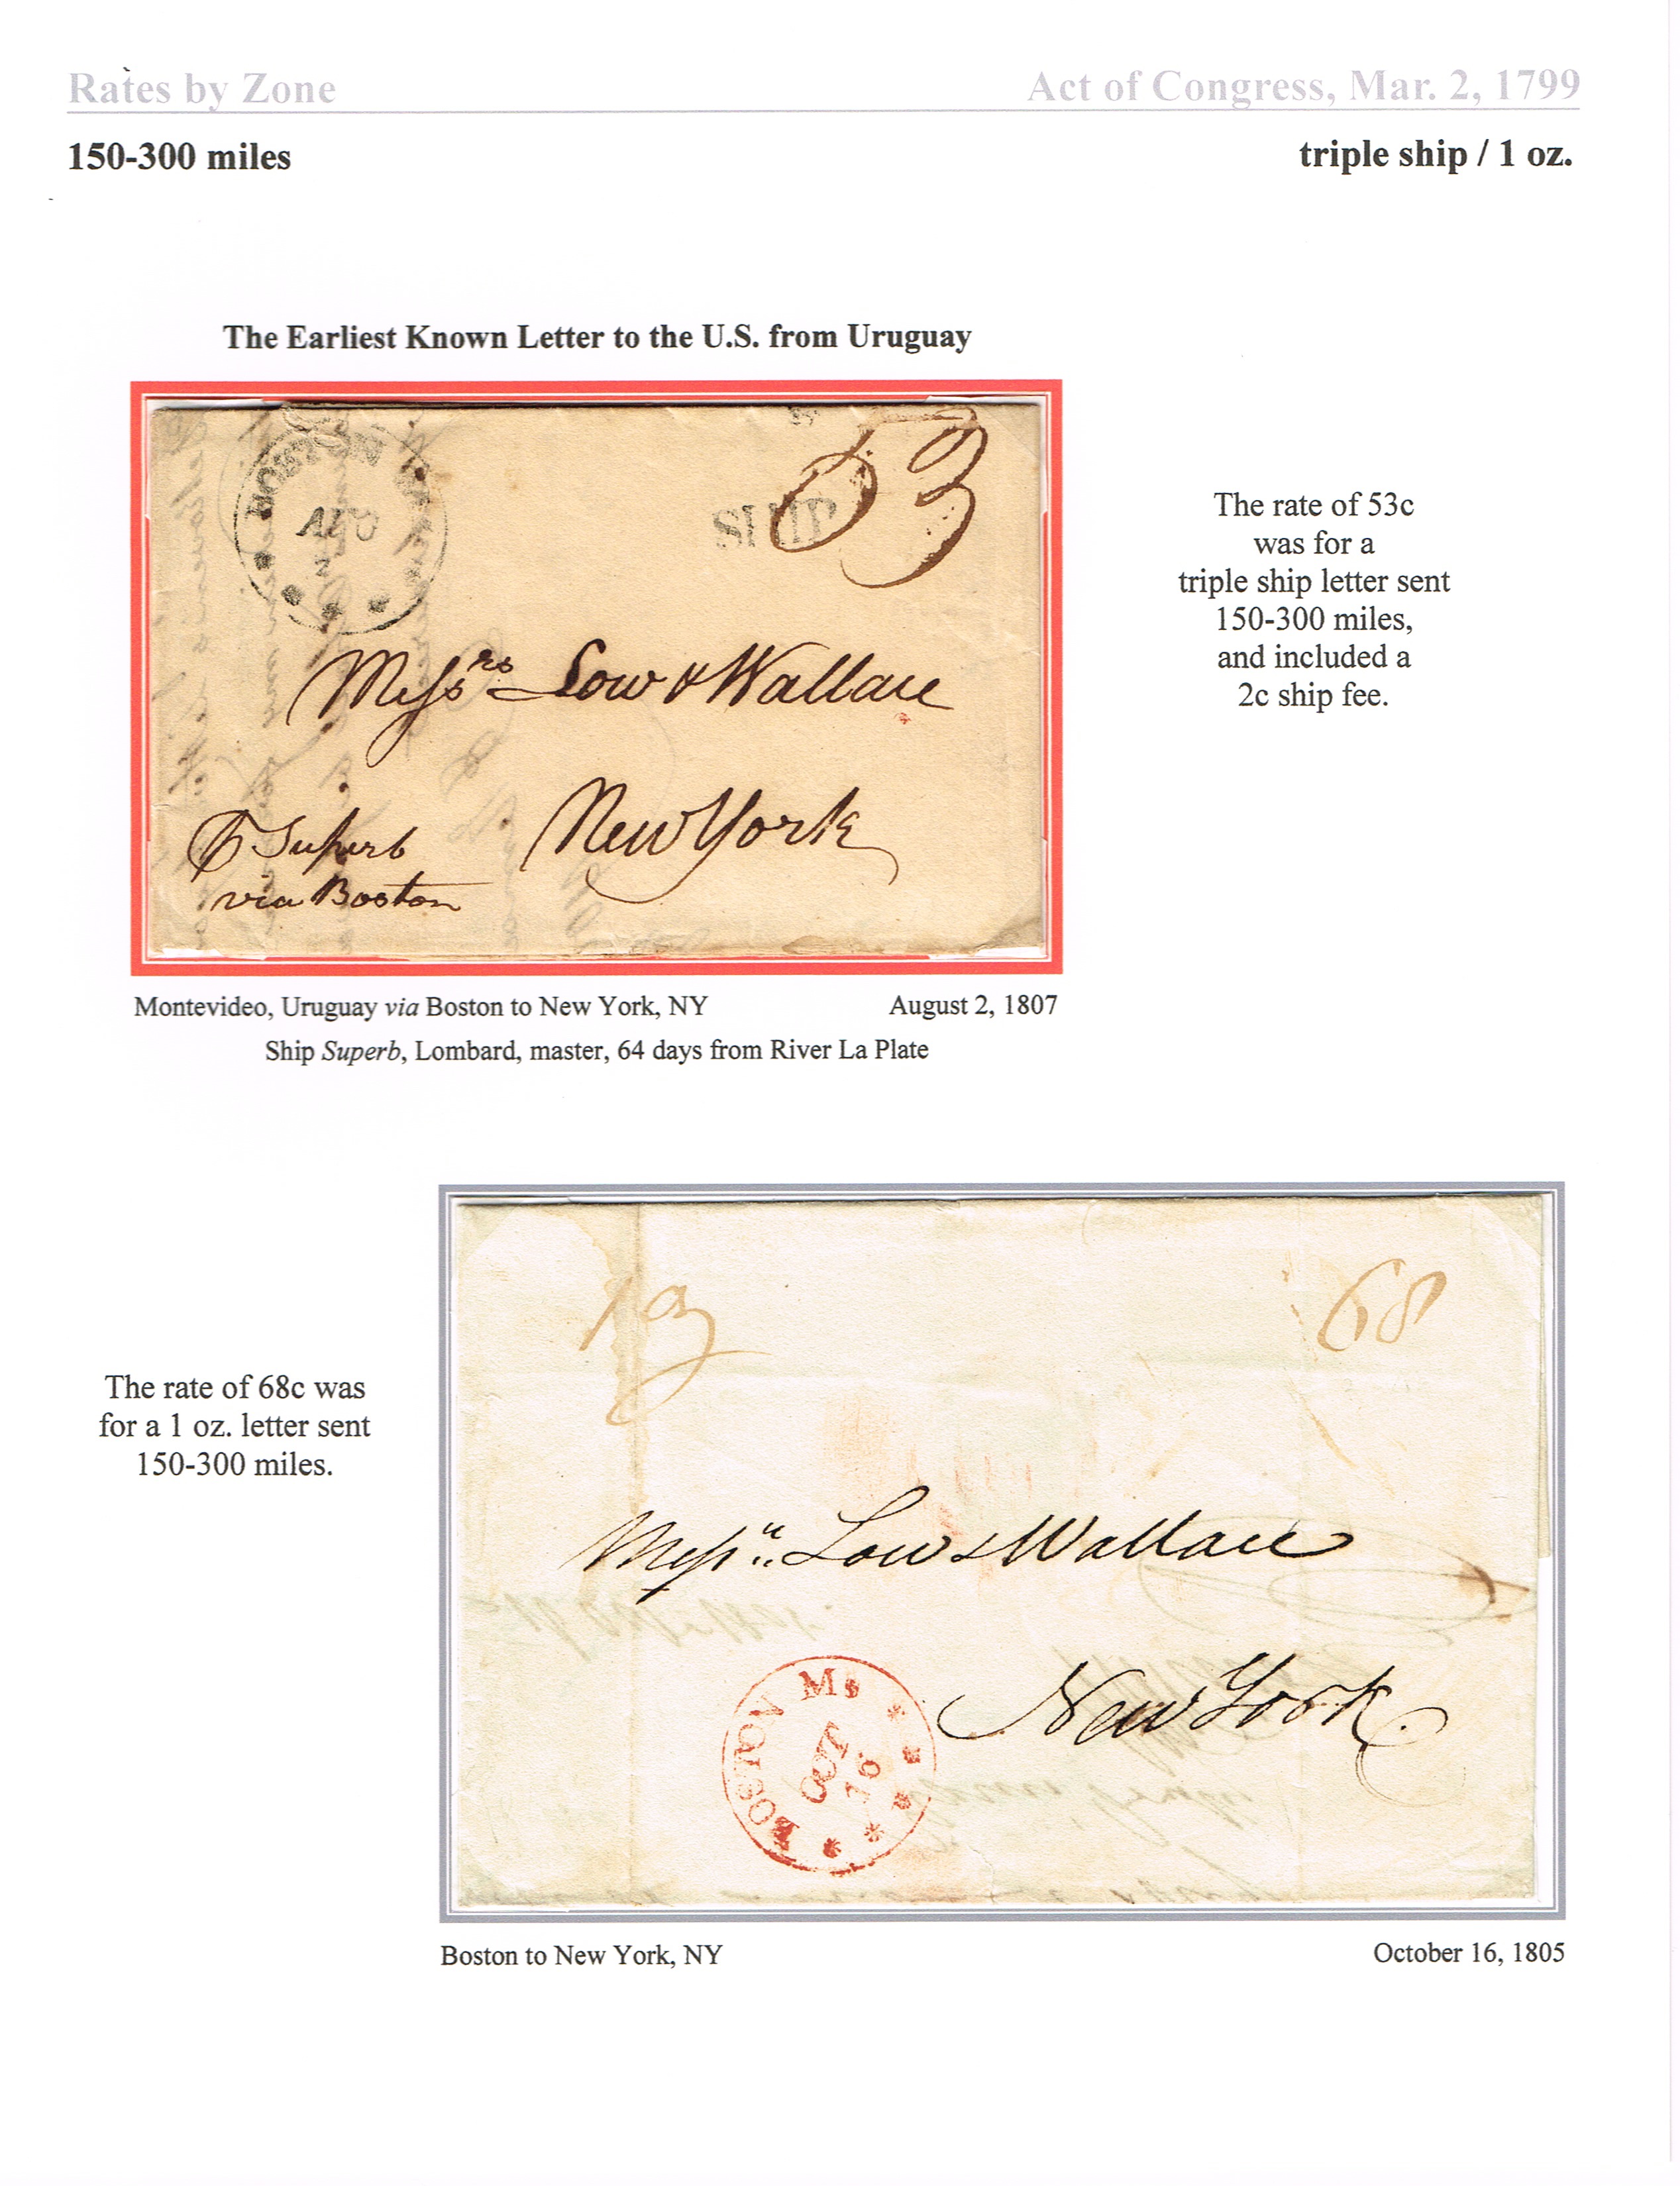 Rates by Zone
Act of Congress, Mar. 2, 1799
150-300 miles
triple ship / 1 oz.
The Earliest Known Letter to the U.S. from Uruguay
BOSTON
AUG
2
SHIP
53
Messrs Low & Wallace
New York
P Superb
via Boston
The rate of 53c
was for a
triple ship letter sent
150-300 miles,
and included a
2c ship fee.
Montevideo, Uruguay via Boston to New York, NY
August 2, 1807
Ship Superb, Lombard, master, 64 days from River La Plate
The rate of 68c was
for a 1 oz. letter sent
150-300 miles.
68
Messrs. Low & Wallace
New York.
BOSTON Ms
OCT
16
Boston to New York, NY
October 16, 1805